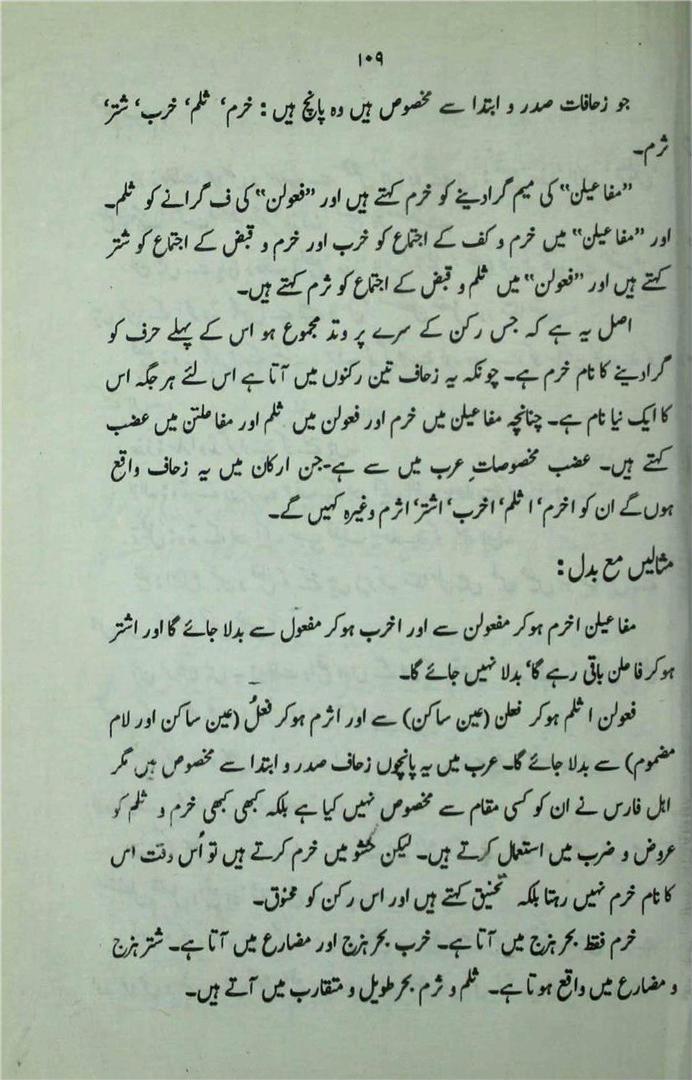 ۱۰۹
جو زحافات صدر و ابتدا سے مخصوص ہیں وہ پانچ ہیں: خرم‘ ثلم‘ خرب‘ شتر‘
ثرم۔
”مفاعیلن“ کی میم گرادینے کو خرم کہتے ہیں اور ”فعولن“ کی ف گرانے کو ثلم۔
اور ”مفاعیلن“ میں خرم و کف کے اجتماع کو خرب اور خرم و قبض کے اجتماع کو شتر
کہتے ہیں اور ”فعولن“ میں ثلم و قبض کے اجتماع کو ثرم کہتے ہیں۔
اصل یہ ہے کہ جس رکن کے سرے پر وتد مجموع ہو اس کے پہلے حرف کو
گرادینے کا نام خرم ہے۔ چونکہ یہ زحاف تین رکنوں میں آتا ہے اس لئے ہر جگہ اس
کا ایک نیا نام ہے۔ چنانچہ مفاعیلن میں خرم اور فعولن میں ثلم اور مفاعلتن میں عضب
کہتے ہیں۔ عضب مخصوصاتِ عرب میں سے ہے۔جن ارکان میں یہ زحاف واقع
ہوں گے ان کو اخرم‘ اثلم‘ اخرب‘ اشتر‘ اثرم وغیرہ کہیں گے۔
مثالیں مع بدل:
مفاعیلن اخرم ہوکر مفعولن سے اور اخرب ہوکر مفعول سے بدلا جائے گا اور اشتر
ہوکر فاعلن باقی رہے گا‘ بدلا نہیں جائے گا۔
فعولن اثلم ہوکر فعلن (عین ساکن) سے اور اثرم ہوکر فعلُ (عین ساکن اور لام
مضموم) سے بدلا جائے گا۔ عرب میں یہ پانچوں زحاف صدر و ابتدا سے مخصوص ہیں مگر
اہل فارس نے ان کو کسی مقام سے مخصوص نہیں کیا ہے بلکہ کبھی کبھی خرم و ثلم کو
عروض و ضرب میں استعمال کرتے ہیں۔ لیکن حشو میں خرم کرتے ہیں تو اُس وقت اس
کا نام خرم نہیں رہتا بلکہ تخنیق کہتے ہیں اور اس رکن کو مخنوق۔
خرم فقط بحر ہزج میں آتا ہے۔ خرب بحر ہزج اور مضارع میں آتا ہے۔ شتر ہزج
و مضارع میں واقع ہوتا ہے۔ ثلم و ثرم بحر طویل و متقارب میں آتے ہیں۔